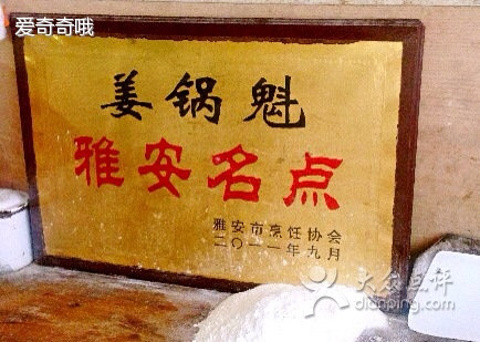 爱奇奇哦
姜锅魁
雅安名点
雅安市烹饪协会
二〇一一年九月
大众点评
dianping.com